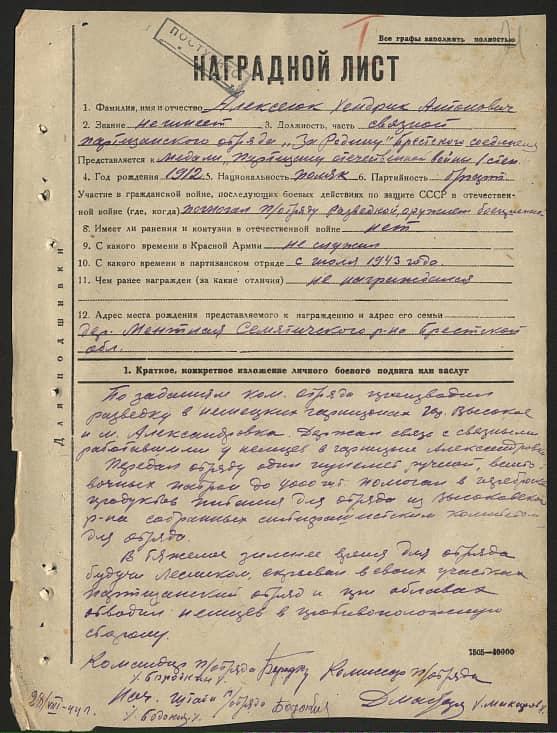 Все графы заполнить полностью
ПОСТУПИЛО
НАГРАДНОЙ ЛИСТ
1. Фамилия, имя и отчество Алексеюк Хендрик Антонович
2. Звание не имеет 3. Должность, часть связной
партизанского отряда „За Родину" Брестского соединения
Представляется к медали „Партизану отечественной войны I степ.
4. Год рождения 1912 5. Национальность поляк 6. Партийность б/парт
Участие в гражданской войне, последующих боевых действиях по защите СССР и отечествен-
ной войне (где, когда) помогал п/отряду разведкой, оружием
8. Имеет ли ранения и контузии в отечественной войне нет
9. С какого времени в Красной Армии не служил
10. С какого времени в партизанском отряде с июля 1943 года.
11. Чем ранее награжден (за какие отличия) не награждался
12. Адрес места рождения представляемого к награждению и адрес его семьи
дер. Ментная Семятичского р-на Брестской
обл.
Для подшивки
1. Краткое, конкретное изложение личного боевого подвига или заслуг
По заданиям ком. отряда производил
разведку в немецких гарнизонах Высокое
и м. Александровка. Держал связь с связными
работавшими у немцев в гарнизоне Александровка
Передал отряду один пулемет ручной, винто-
вочных патрон до 4000 шт. помогал в
продуктов питания для отряда из Высоковского
р-на собранных антифашистским комитетом
для отряда.
В тяжелое зимнее время для отряда
будучи лесником, скрывал в своих участках
партизанский отряд и при облавах
отводил немцев в противоположную
сторону.
1505—40000
Командир п/отряда Комиссар п/отряда
Нач. штаба п/отряда
28/VIII-44 г.